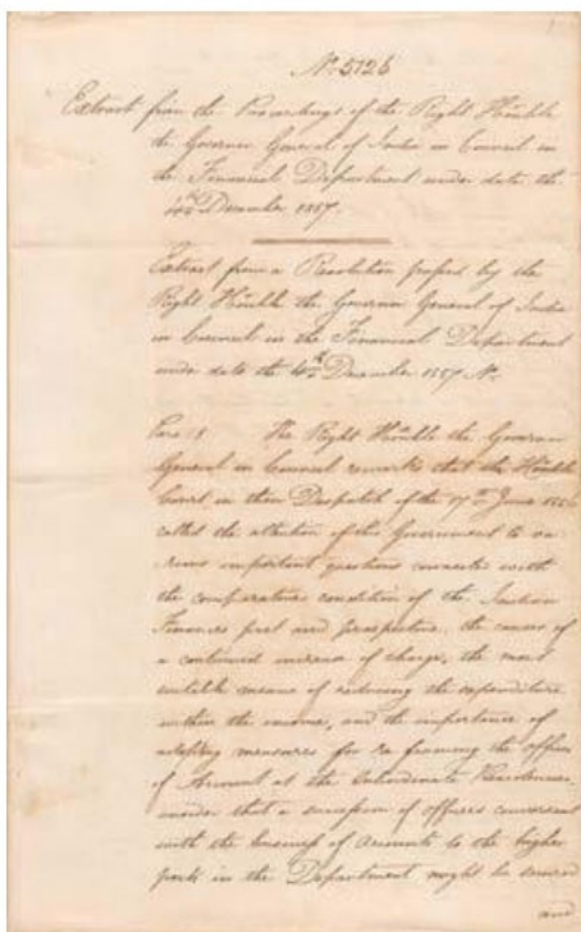 No. 5126
Extract from the Proceedings of the Right Honble
the Governor General of India in Council in
the Financial Department under date the
4th December 1857.
Extract from a Resolution passed by the
Right Honble the Governor General of India
in Council in the Financial Department
under date the 4th December 1857 No.
Para 1 The Right Honble the Governor
General in Council remarks that the Honble
Court in their Despatch of the 17th June
called the attention of this Government to va-
rious important questions connected with
the comparative condition of the Indian
Finances past and prospective, the causes of
a continued increase of charge, the most
suitable means of reducing the expenditure
within the income, and the importance of
adopting measures for re framing the offices
of Account at the Subordinate Presidencies
in order that a succession of officers conversant
with the business of Accounts to the higher
posts in the Department might be secured
and